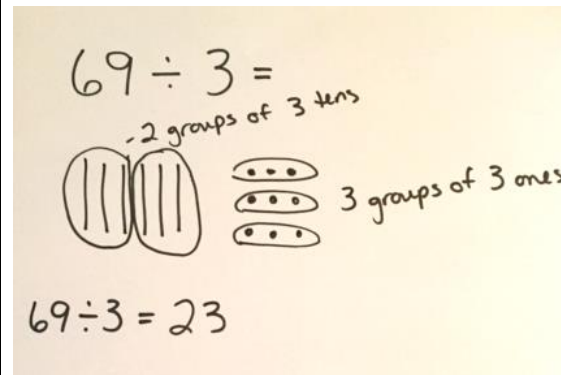 69 ÷ 3 =
- 2 groups of 3 tens
3 groups of 3 ones
69 ÷ 3 = 23